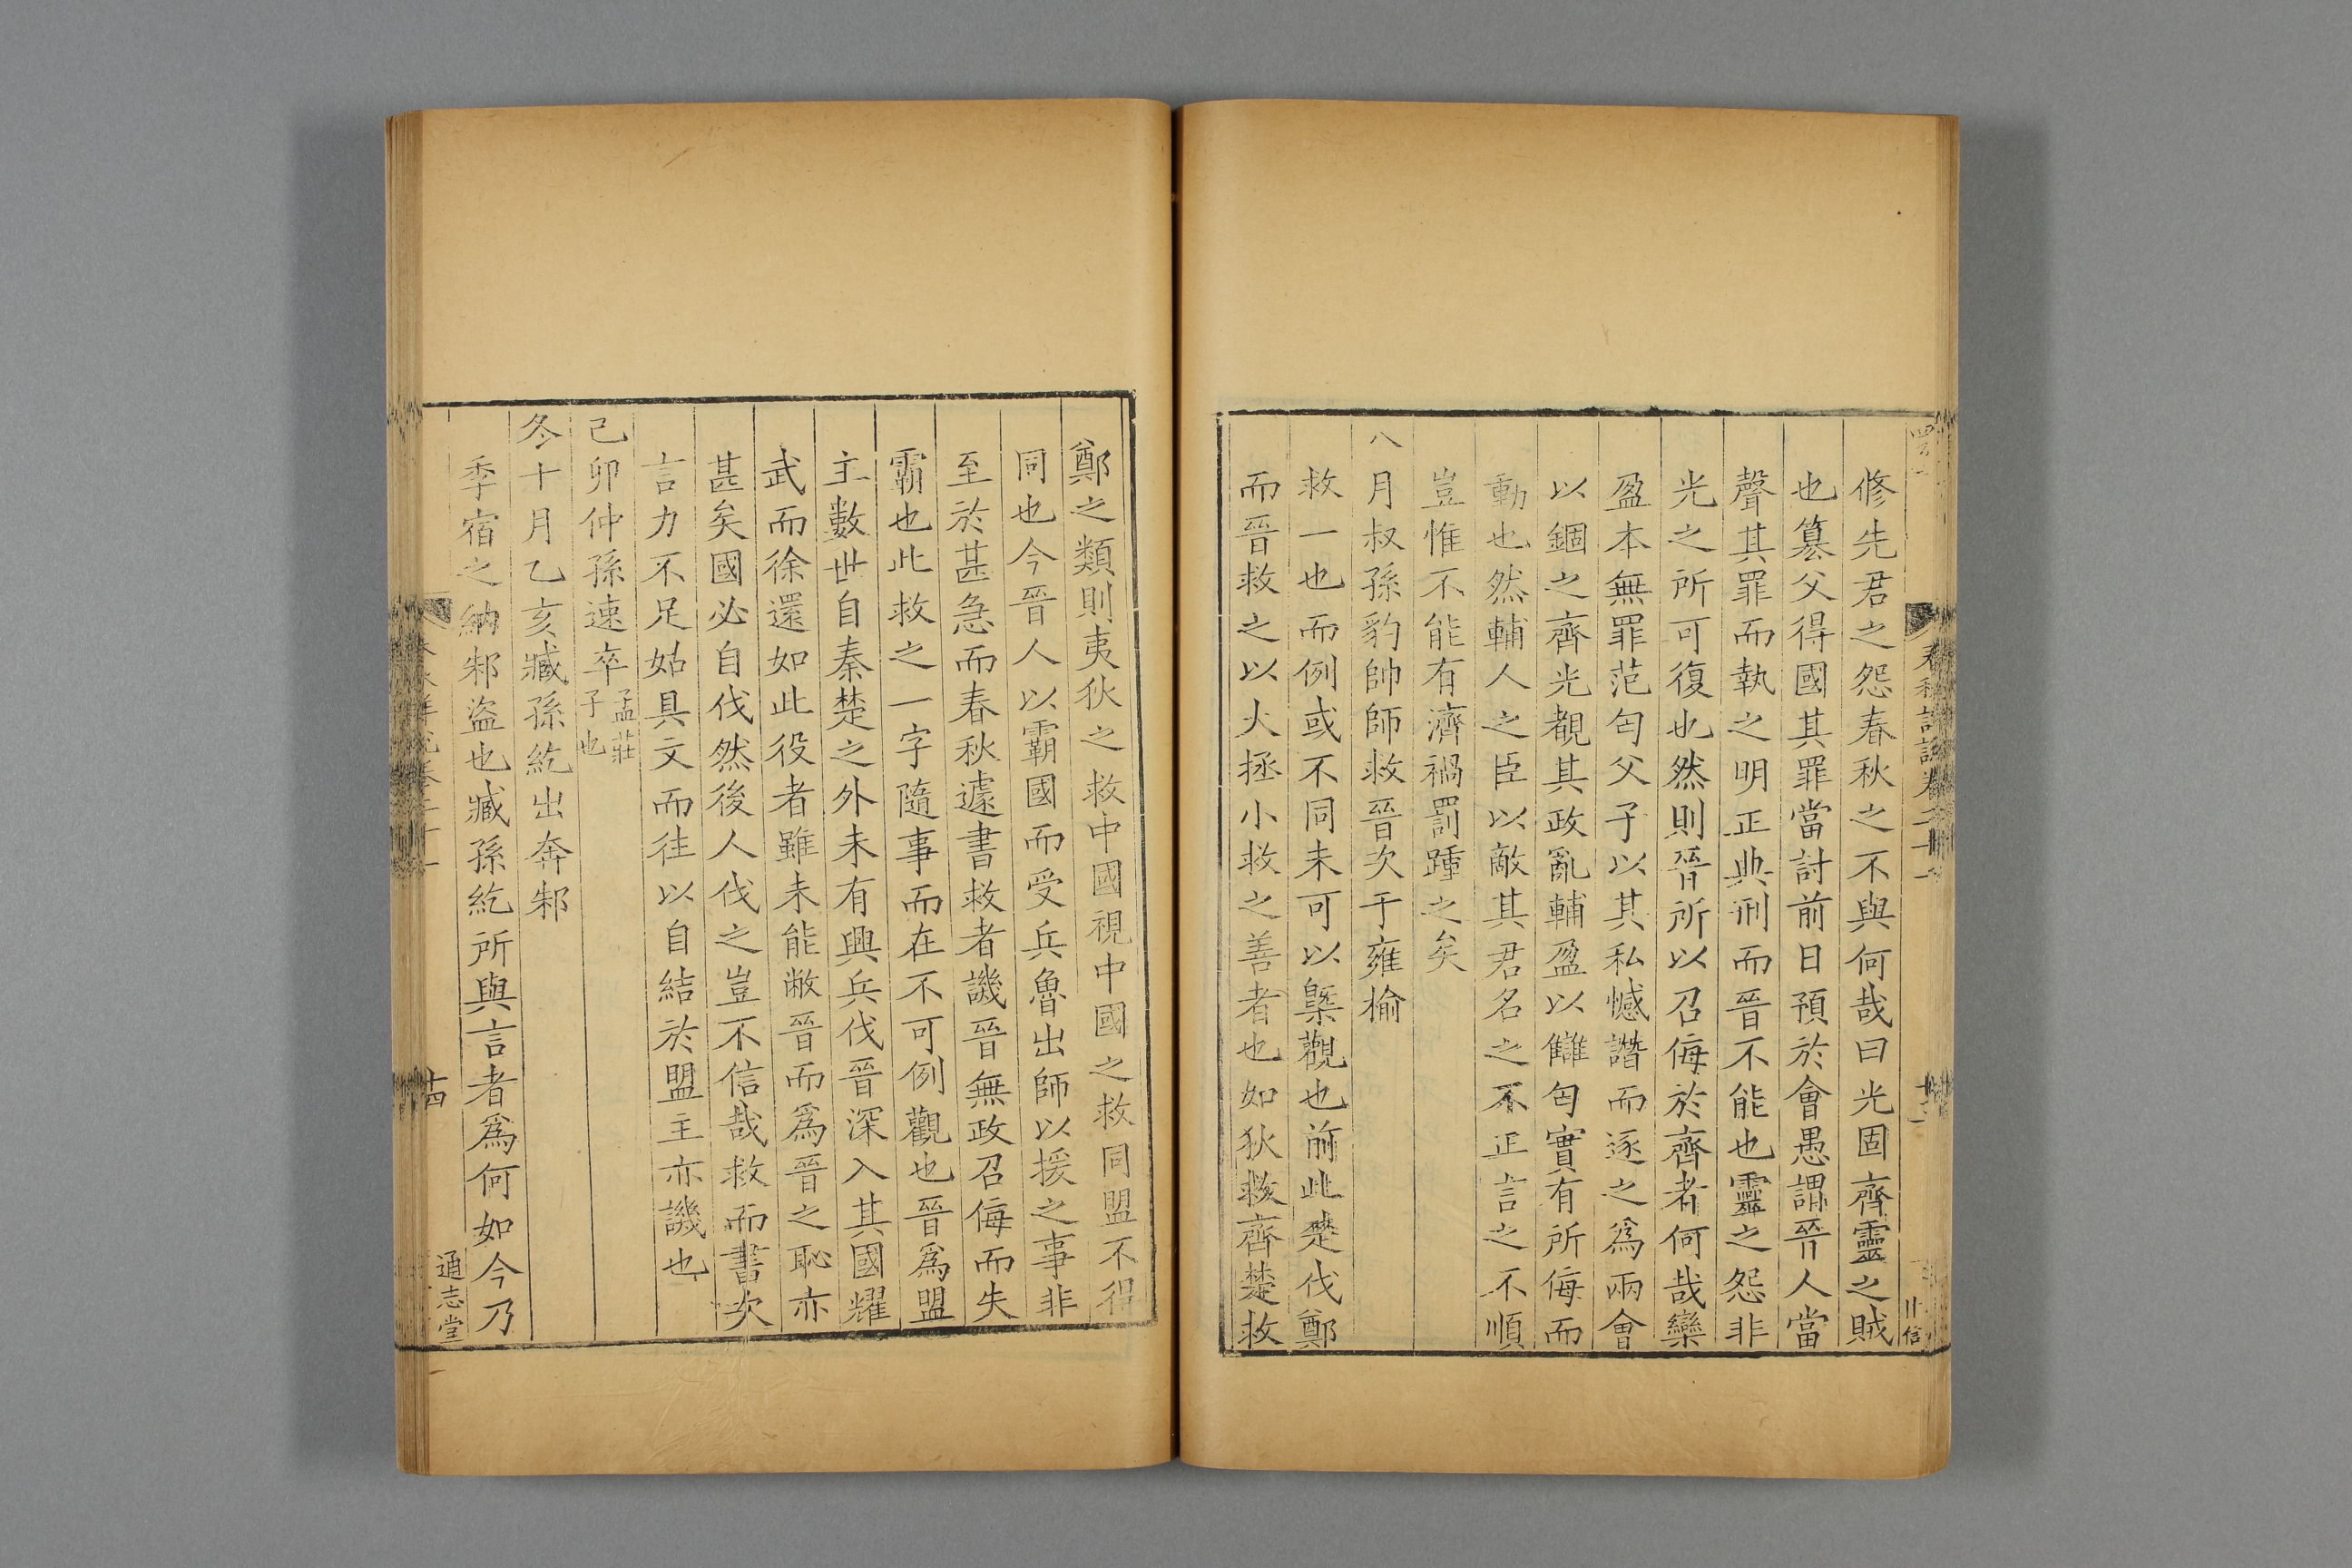 修先君之怨春秋之不與何哉曰光固齊靈之賊
也篡父得國其罪當討前日預於會愚謂晉人當
聲其罪而執之明正典刑而晉不能也靈之怨非
光之所可復也然則晉所以召侮於齊者何哉欒
盈本無罪范匄父子以其私憾譖而逐之爲兩會
以錮之齊光覩其政亂輔盈以讎匄實有所侮而
動也然輔人之臣以敵其君名之不正言之不順
豈惟不能有濟禍罰踵之矣
八月叔孫豹帥師救晉次于雍榆
救一也而例或不同未可以槩觀也前此楚伐鄭
而晉救之以大拯小救之善者也如狄救齊楚救
鄭之類則夷狄之救中國視中國之救同盟不得
同也今晉人以霸國而受兵魯出師以援之事非
至於甚急而春秋遽書救者譏晉無政召侮而失
霸也此救之一字隨事而在不可例觀也晉爲盟
主數世自秦楚之外未有興兵伐晉深入其國耀
武而徐還如此役者雖未能敝晉而爲晉之恥亦
甚矣國必自伐然後人伐之豈不信哉救而書次
言力不足姑具文而往以自結於盟主亦譏也
己卯仲孫速卒孟莊子也
冬十月乙亥臧孫紇出奔邾
季宿之納邾盜也臧孫紇所與言者爲何如今乃
十四
通志堂